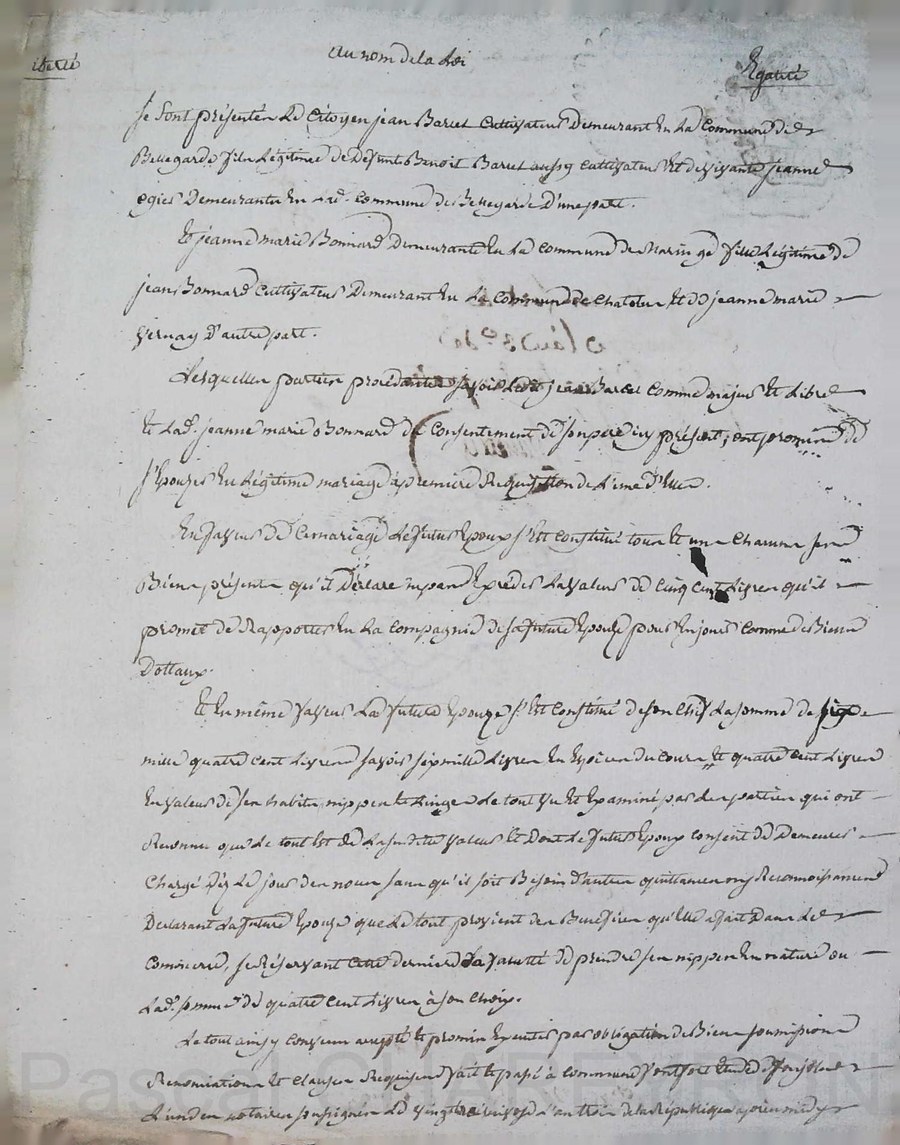 iberté Au nom de la Loi Egalité
Se sont présentés Le Citoyen jean Barcet Cultivateur Demeurant En La Commune de
Bellegarde fils Légitime de Défunt Benoit Barcet aussy Cultivateur Et de vivante jeanne
Demeurante En Lad. Commune de Bellegarde D'une part.
Et jeanne marie Bonnard Demeurante En La Commune de Maringe fille Légitime de
jean Bonnard Cultivateur Demeurant En La Commune de Chatelus Et de jeanne marie
Vernay D'autre part.
Lesquelles parties procédantes savoir Ledit jean Barcet Comme majeur Et Libre
Et Lad. jeanne marie Bonnard du Consentement de son pere icy présent, ont promis de
s'Epouzer En Légitime mariage à première Réquisition de L'un d'Eux.
En faveur de Ce mariage Le futur Epoux s'Est Constitué tous Et uns Chacuns ses
Biens présents qu'il Déclare Etre de La valeur de Cinq Cent Livres qu'il
promet de Rapporter En La Compagnie de sa future Epouze pour En jouir Comme de Biens
Dottaux.
Et En même faveur La future Epouze s'Est Constitué de son Chef La somme de
mille quatre Cent Livres savoir mille Livres En Espèces du Cours Et quatre Cent Livres
En valeur de ses habits, nippes Et Linges Le tout vu Et Examiné par Les parties qui ont
Reconnu que Le tout Est de La susditte valeur Et Dont Le futur Epoux Consent de Demeurer
Chargé Dez Le jour des noces sans qu'il soit Besoin d'autres quittances ny Reconnoissances
Déclarant La future Epouze que Le tout provient des Bénéfices qu'Elle a fait Dans Le
Commerce, se Réservant Cette dernière La faculté de prendre ses nippes En nature ou
Lad. somme de quatre Cent Livres à son Choix.
Le tout ainsy Convenu accepté Et promis Exécuter par obligation de Biens soumissions
Renonciations Et Clauses Requises fait Et passé à
L'un des notaires soussignés Le vingt L'an trois de la République après midy
Pascal